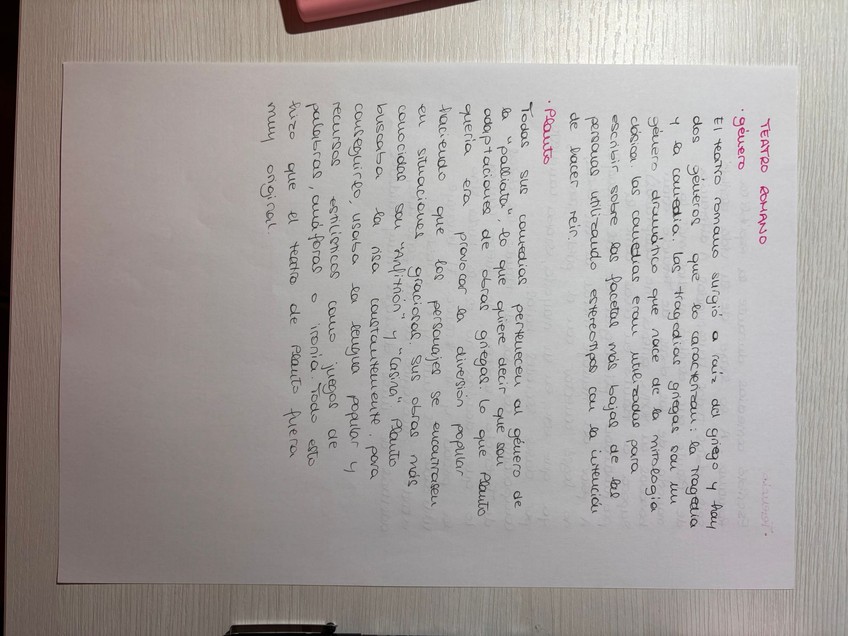 TEATRO ROMANO
· género
El teatro romano surgió a raíz del griego y hay
dos géneros que lo caracterizan: la tragedia
y la comedia. las tragedias griegas son un
género dramático que nace de la mitología
clásica. las comedias eran utilizadas para
escribir sobre las facetas más bajas de las
personas utilizando estereotipos con la intención
de hacer reir.
· Plauto
Todas sus comedias pertenecen al género de
la "palliata", lo que quiere decir que son
adaptaciones de obras griegas. lo que Plauto
quería era provocar la diversión popular
haciendo que los personajes se encontrasen
en situaciones graciosas. sus obras más
conocidas son "Anfitrión" y "Casina" Plauto
buscaba la risa constantemente. para
conseguirlo, usaba la lengua popular y
recursos estilísticos como juegos de
palabras, anáforas o ironía. Todo esto
hizo que el teatro de Plauto fuera
muy original.